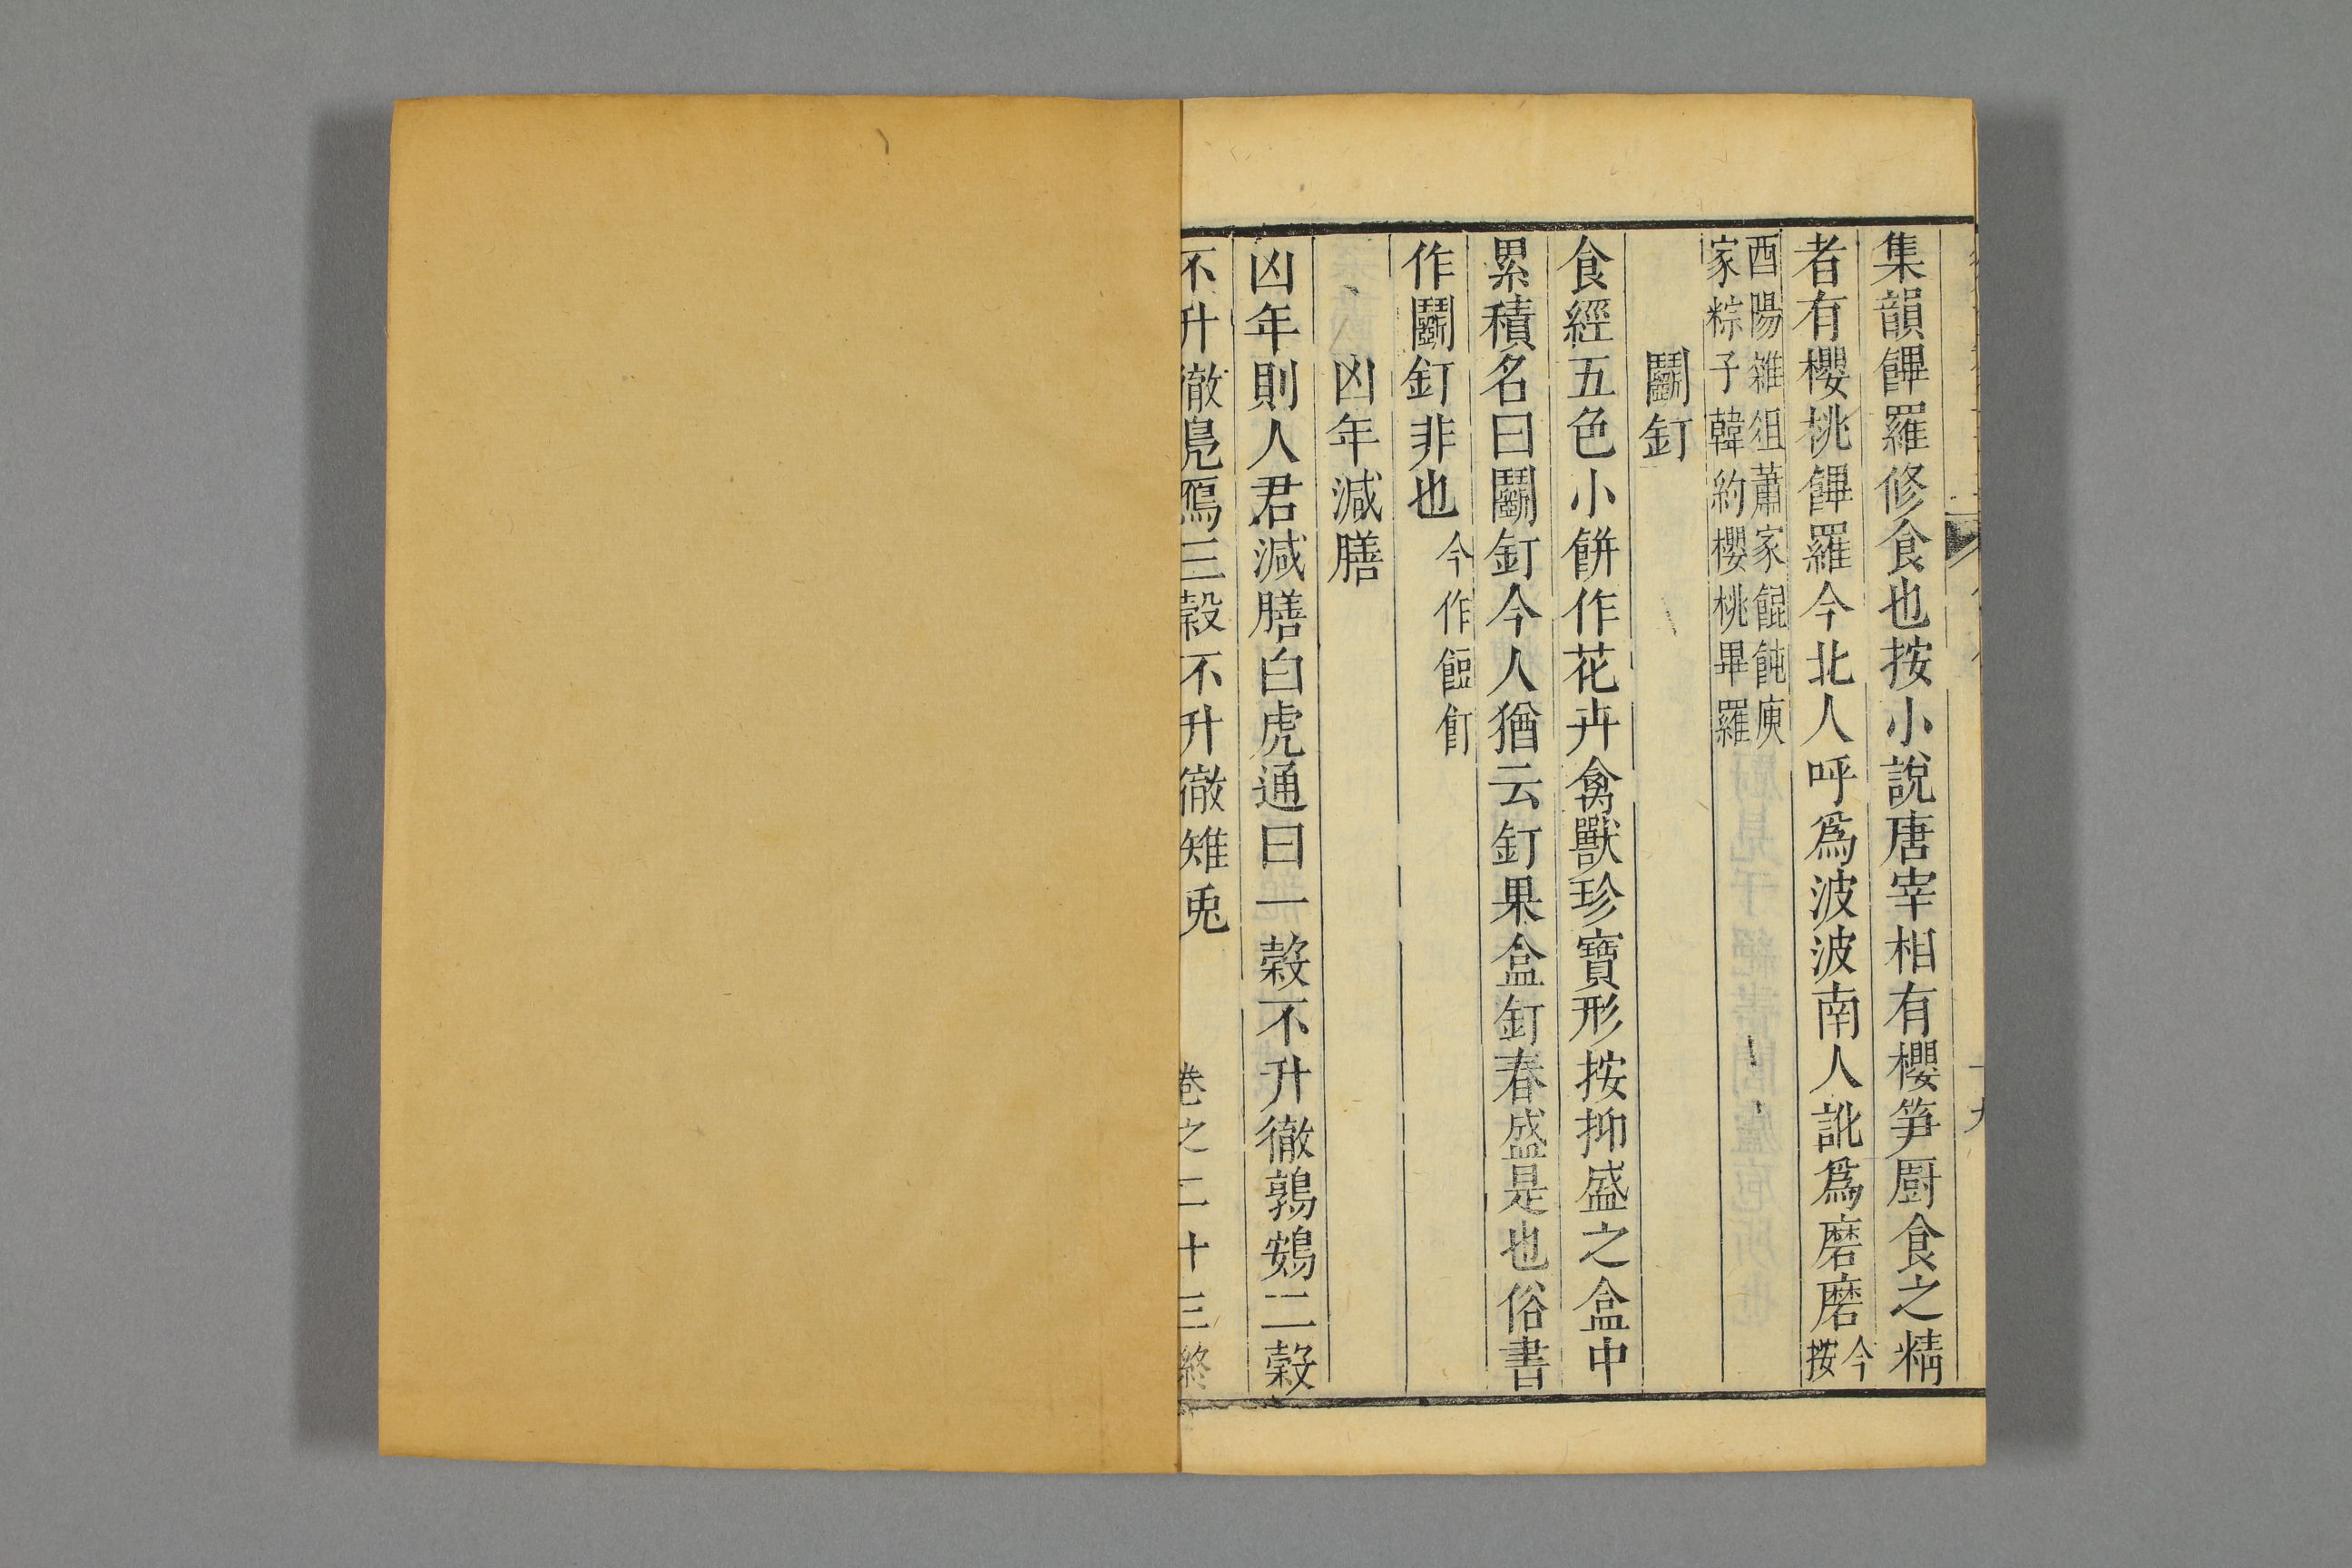 集韻饆羅修食也按小說唐宰相有櫻笋厨食之精
者有櫻桃饆羅今北人呼爲波波南人訛爲磨磨今按
酉陽雜俎蕭家餛飩庾
家粽子韓約櫻桃畢羅
鬬釘
食經五色小餅作花卉禽獸珍寶形按抑盛之盒中
累積名曰鬬釘今人猶云釘果盒釘春盛是也俗書
作鬬釘非也今作餖飣
凶年減膳
凶年則人君減膳白虎通曰一穀不升徹鶉鴳二穀
不升徹鳧鴈三穀不升徹雉兎
卷之二十三終